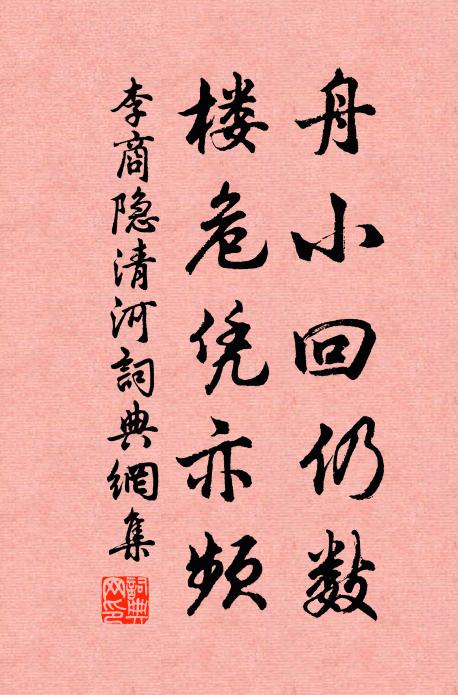 舟小回仍数
楼危凭亦频
李商隐清河詞典網集
詞典网印